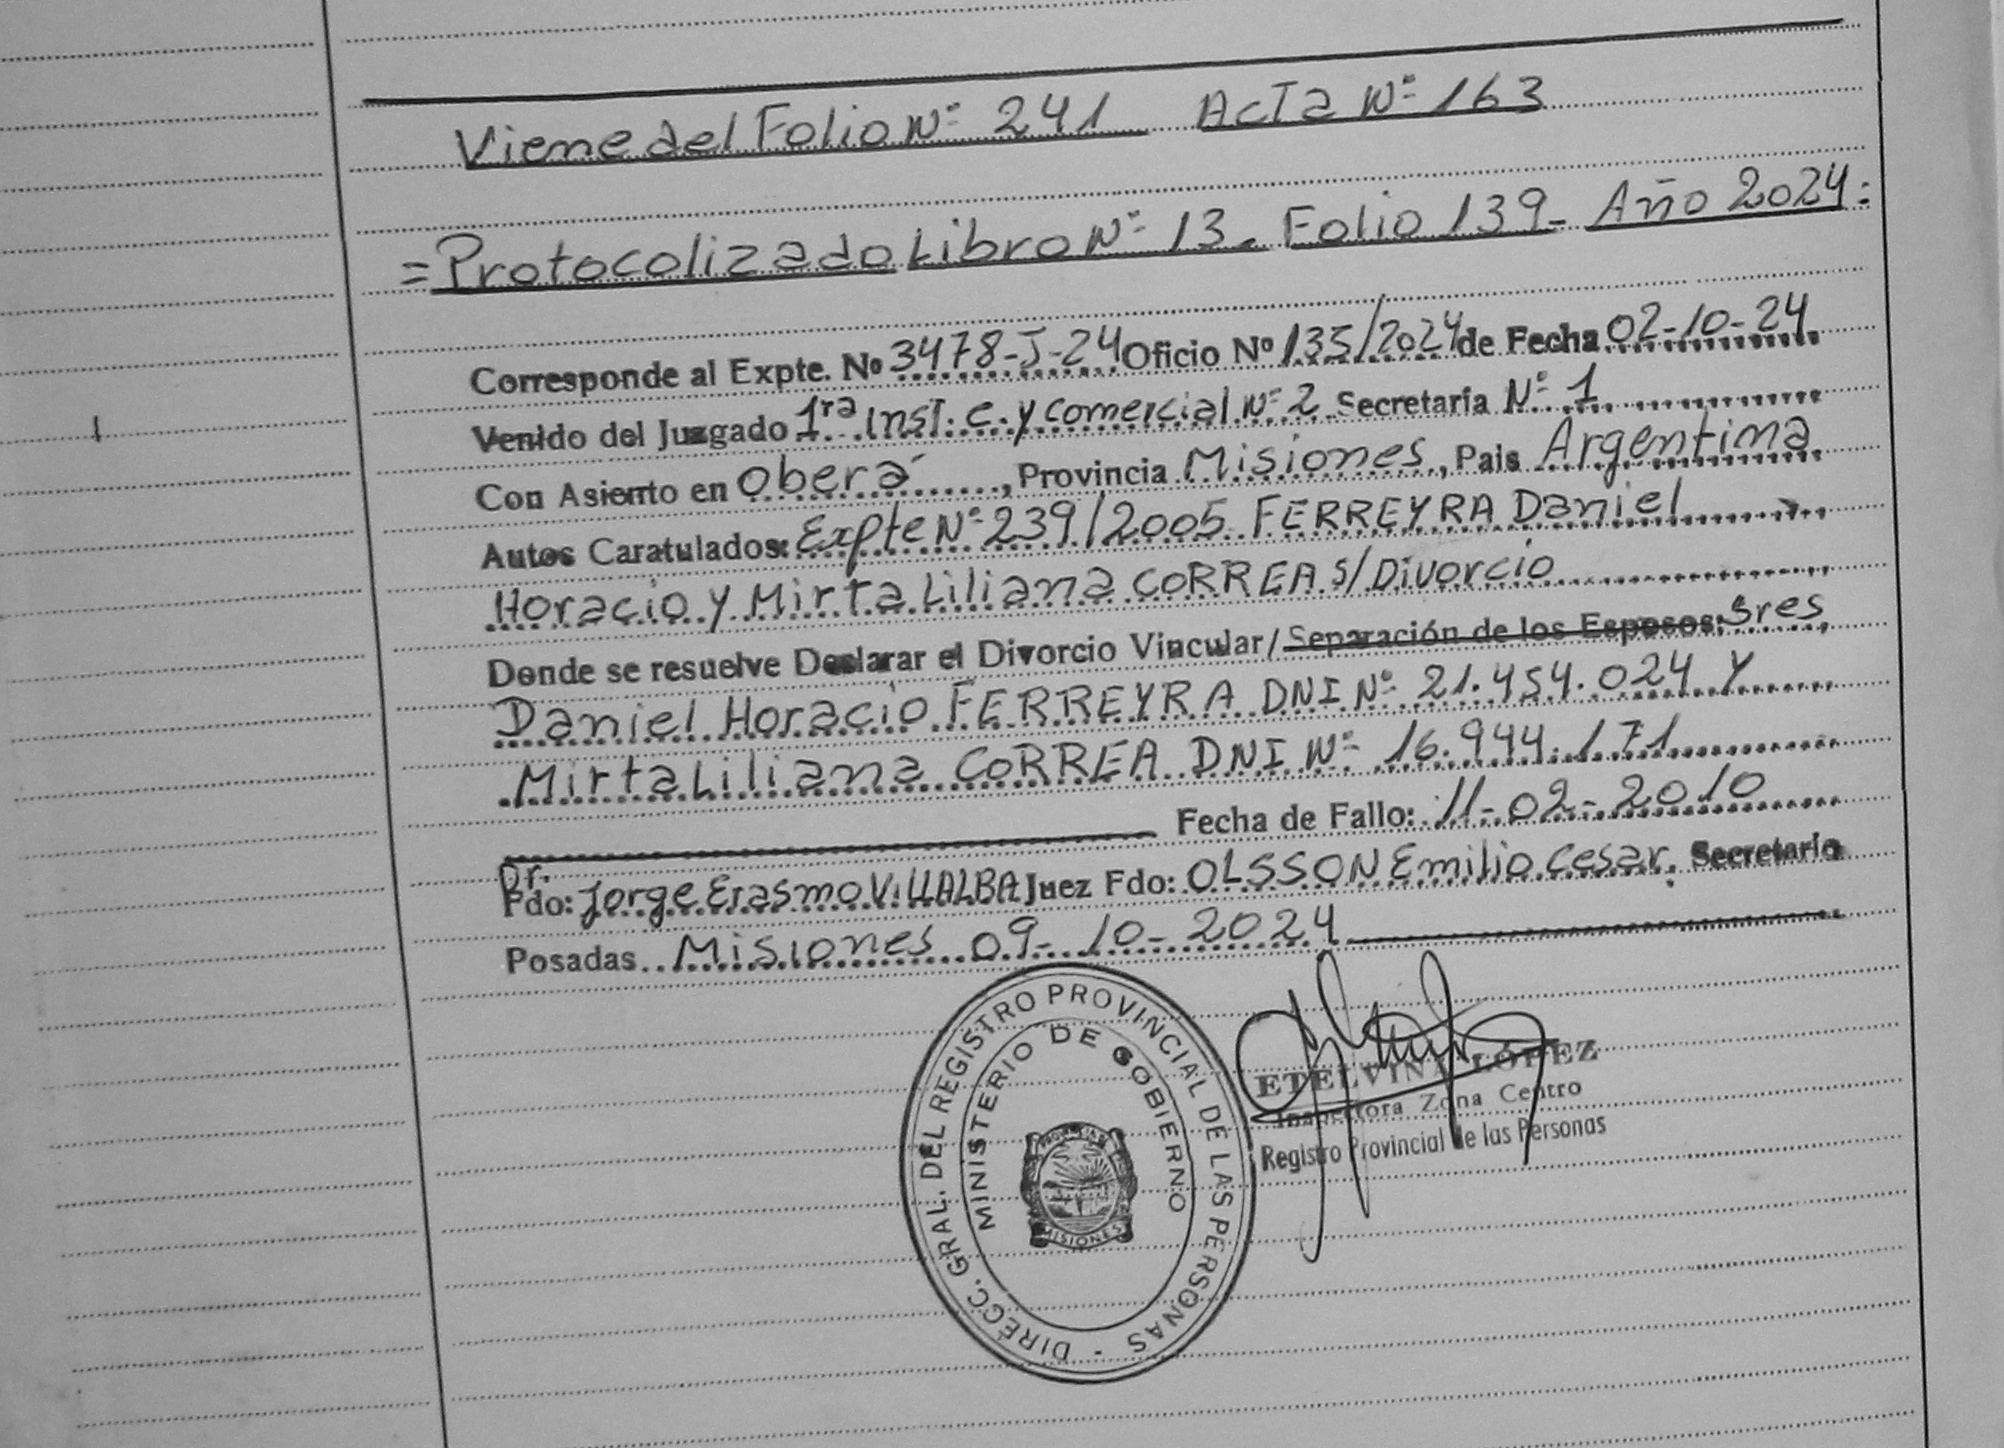 Viene del Folio Nº 241 Acta Nº 163
= Protocolizado Libro Nº 13 - Folio 139 - Año 2024 =
Corresponde al Expte. Nº 3478-J-24 Oficio Nº 135/2024 de Fecha 02-10-24
Venido del Juzgado 1ra Inst. C. y Comercial Nº 2 Secretaria Nº 1
Con Asiento en Oberá, Provincia Misiones, Pais Argentina
Autos Caratulados: Expte Nº 239/2005 FERREYRA Daniel
Horacio y Mirta Liliana CORREA S/Divorcio
Donde se resuelve Declarar el Divorcio Vincular/Separación de los Esposos: Sres,
Daniel Horacio FERREYRA DNI Nº 21.454.024 Y
Mirta Liliana CORREA DNI Nº 16.944.171
Fecha de Fallo: 11-02-2010
Dr.
Fdo: Jorge Erasmo VILLALBA Juez Fdo: OLSSON Emilio Cesar. Secretario
Posadas Misiones 09-10-2024
DIRECC. GRAL. DEL REGISTRO PROVINCIAL DE LAS PERSONAS -
MINISTERIO DE GOBIERNO
MISIONES
ETELVINA LÓPEZ
Inspectora Zona Centro
Registro Provincial de las Personas